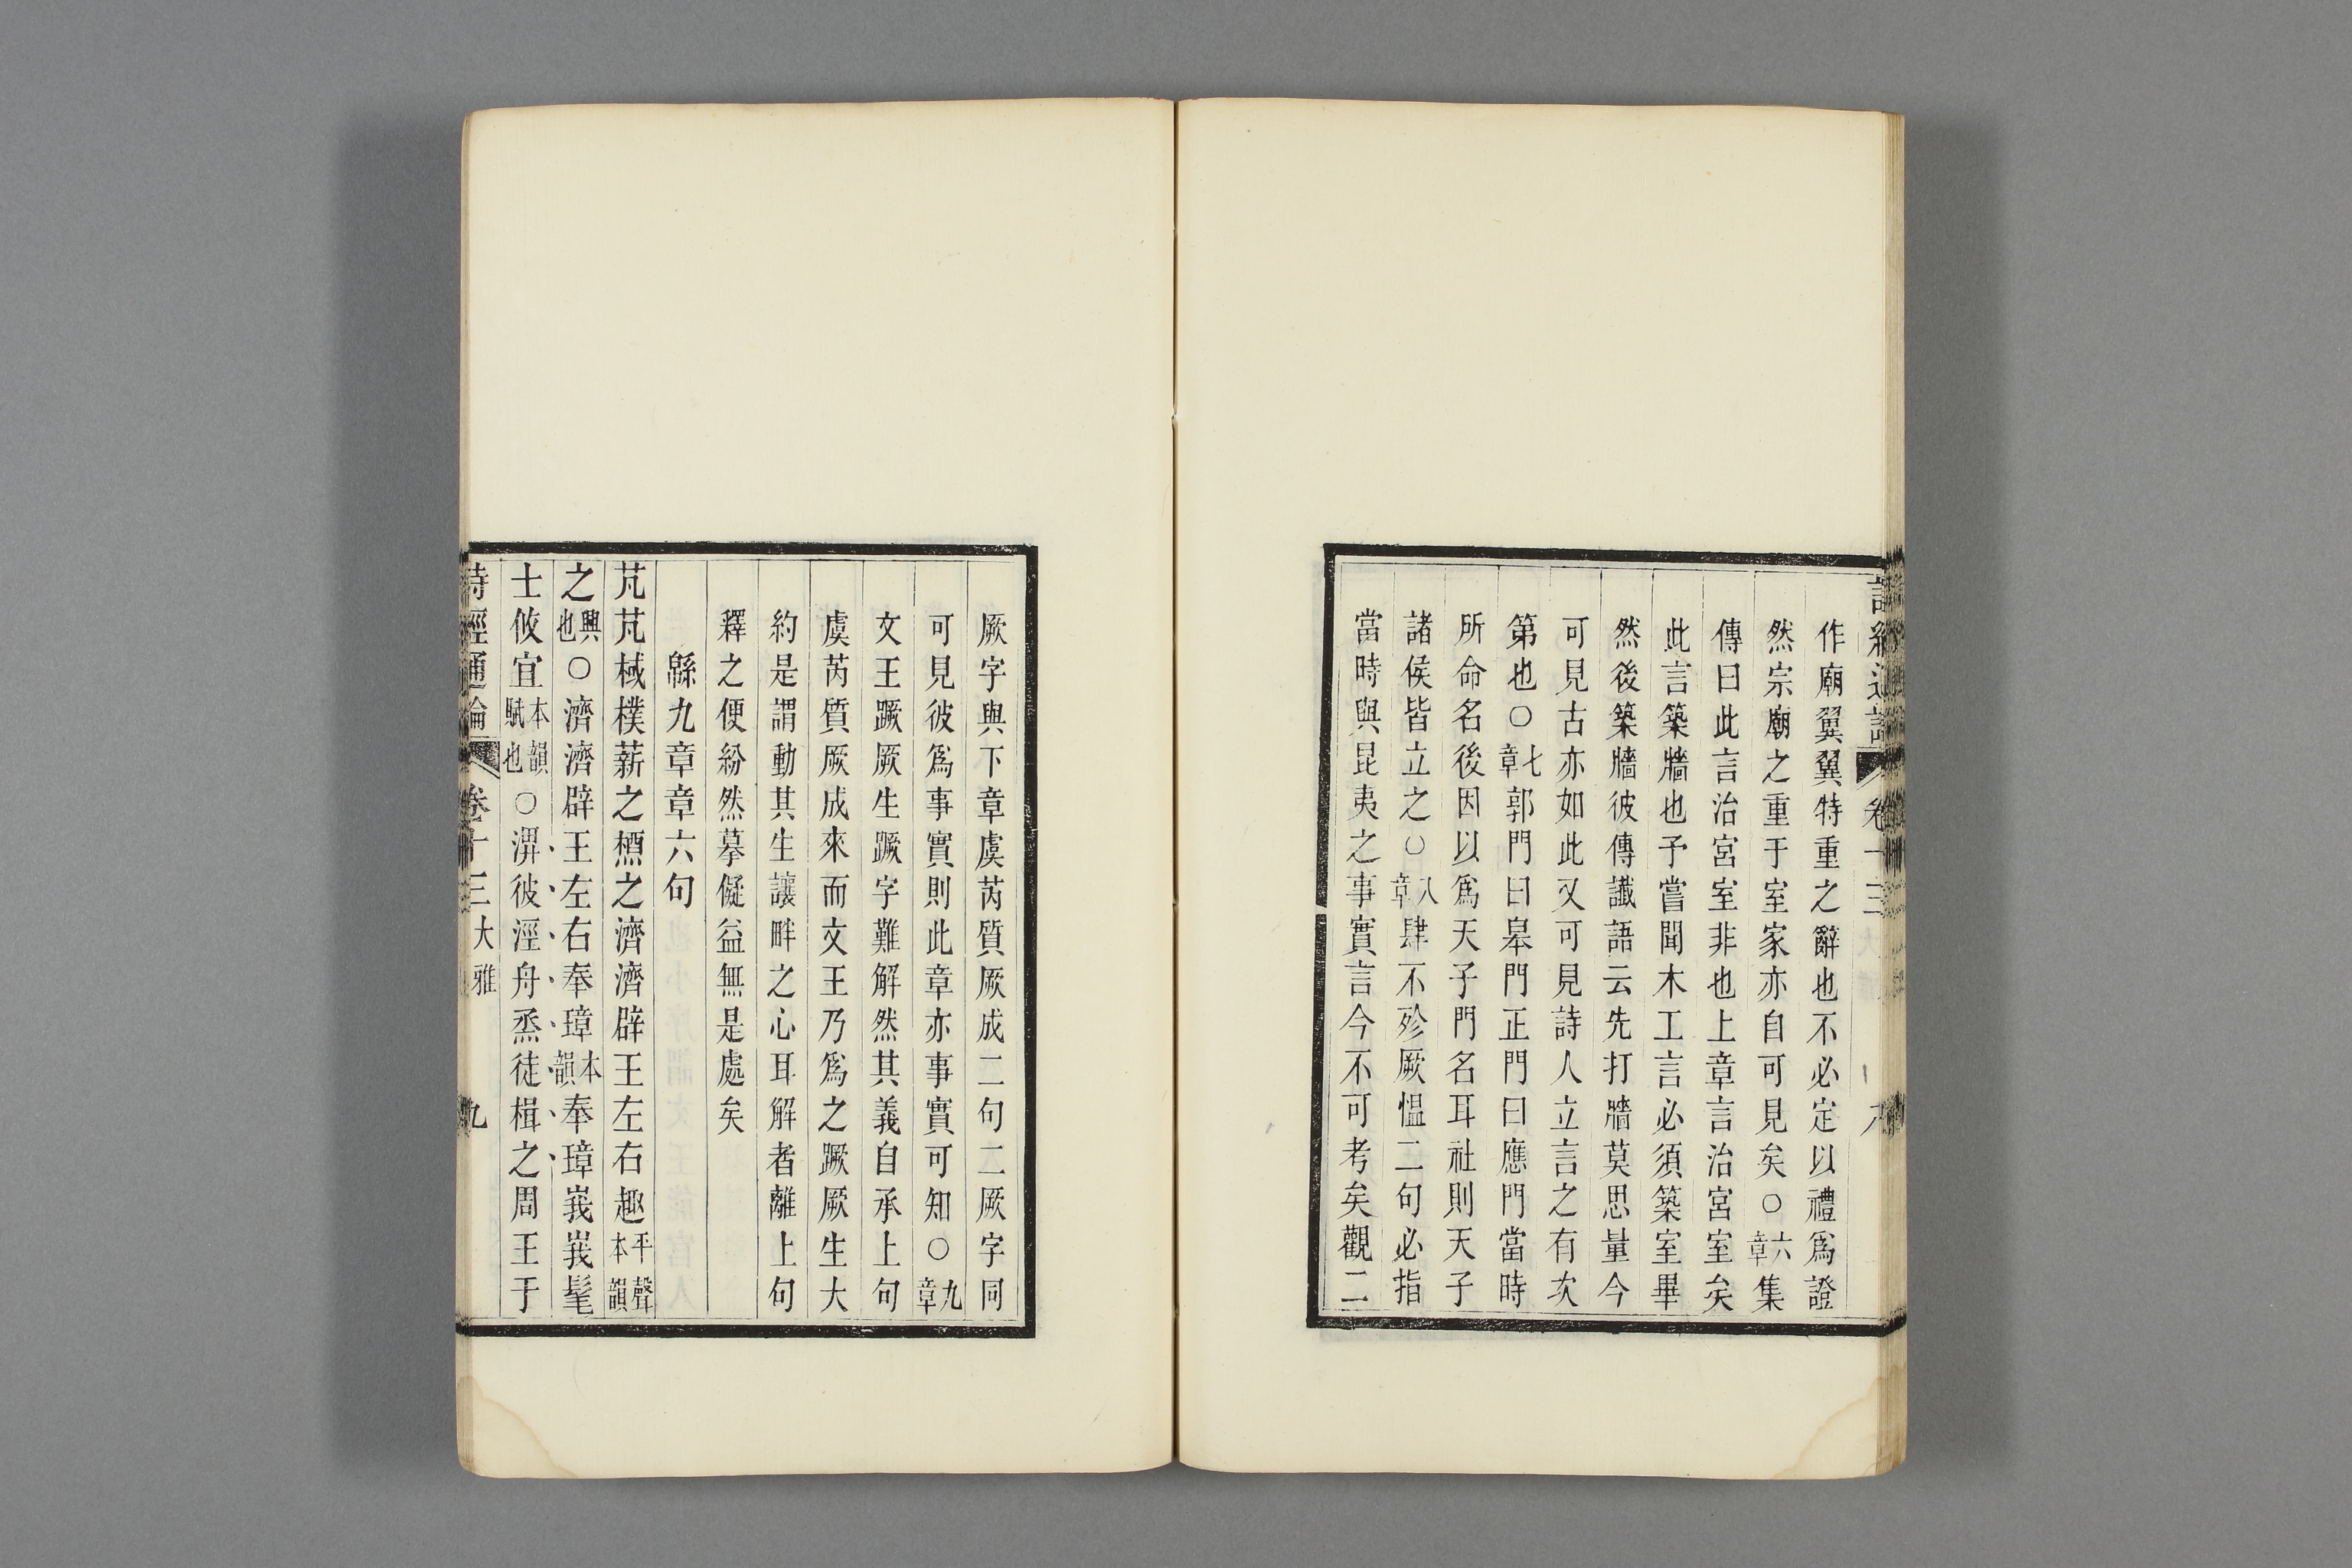 作廟翼翼特重之辭也不必定以禮爲證
然宗廟之重于室家亦自可見矣○六章集
傳曰此言治宮室非也上章言治宮室矣
此言築牆也予嘗聞木工言必須築室畢
然後築牆彼傳讖語云先打牆莫思量今
可見古亦如此又可見詩人立言之有次
第也○七章郭門曰皋門正門曰應門當時
所命名後因以爲天子門名耳社則天子
諸侯皆立之○八章肆不殄厥慍二句必指
當時與昆夷之事實言今不可考矣觀二
厥字與下章虞芮質厥成二句二厥字同
可見彼爲事實則此章亦事實可知○九章
文王蹶厥生蹶字難解然其義自承上句
虞芮質厥成來而文王乃爲之蹶厥生大
約是謂動其生讓畔之心耳解者離上句
釋之便紛然摹儗益無是處矣
緜九章章六句
芃芃棫樸薪之槱之濟濟辟王左右趣平聲本韻
之興也○濟濟辟王左右奉璋本韻奉璋峩峩髦
士攸宜本韻賦也○淠彼涇舟烝徒楫之周王于
詩經通論 卷十三 大雅 九